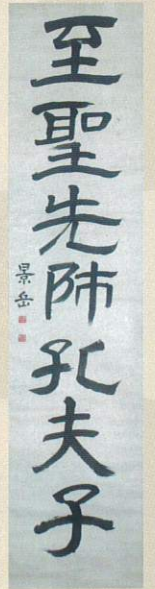 至聖先師孔夫子
景岳